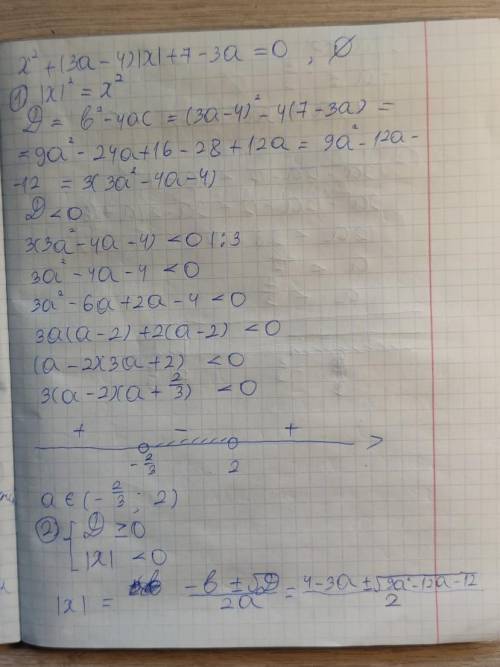 x² + (3a-4)|x| + 7 - 3a = 0 , ∅
① |x|² = x²
D = b² - 4ac = (3a-4)² - 4(7-3a) =
= 9a² - 24a + 16 - 28 + 12a = 9a² - 12a -
-12 = 3(3a² - 4a - 4)
D < 0
3(3a² - 4a - 4) < 0 |:3
3a² - 4a - 4 < 0
3a² - 6a + 2a - 4 < 0
3a(a-2) + 2(a-2) < 0
(a-2)(3a+2) < 0
3(a-2)(a + 2/3) < 0
+ - +
-2/3 2
a ∈ (-2/3 ; 2)
② { D ≥ 0
|x| < 0
|x| = (-b ± √D)/2a = (4-3a ± √9a²-12a-12)/2